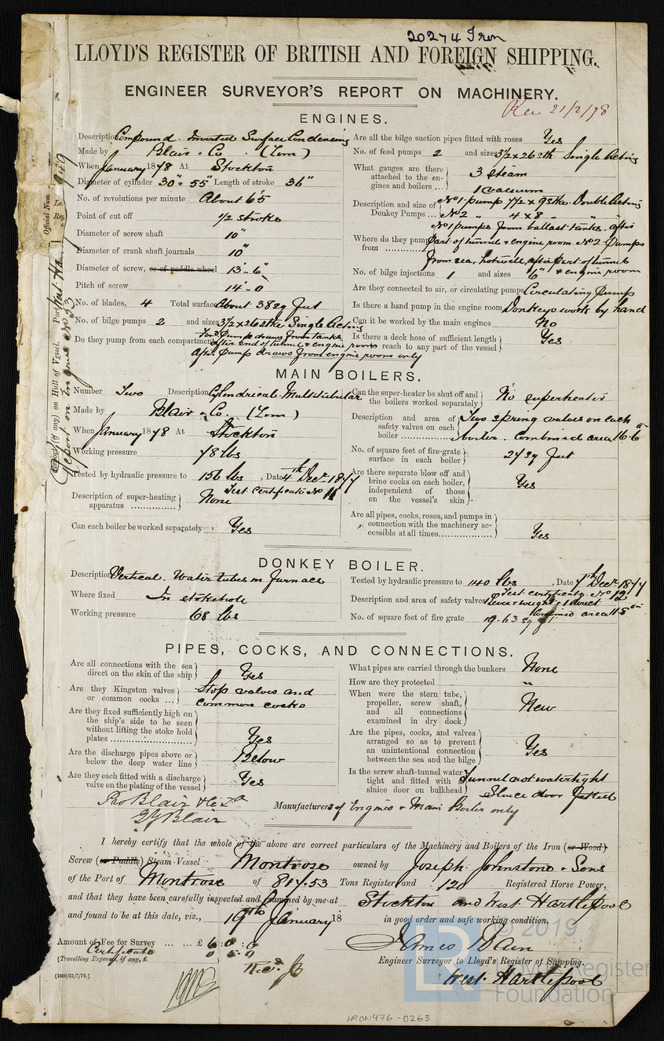 20274 Iron
LLOYD'S REGISTER OF BRITISH AND FOREIGN SHIPPING.
ENGINEER SURVEYOR'S REPORT ON MACHINERY.
Rec 21/2/78
ENGINES.
Description Compound Inverted Surface Condensing
Made by Blair & Co. (Lim)
When January 1878 At Stockton
Diameter of cylinder 30" & 55" Length of stroke 36"
No. of revolutions per minute About 65
Point of cut off 1/2 Stroke
Diameter of screw shaft 10"
Diameter of crank shaft journals 10"
Diameter of screw, or of paddle wheel 13 - 6"
Pitch of screw 14 - 0
No. of blades, 4 Total surface About 38 sq feet
No. of bilge pumps 2 and sizes 3 1/2 x 26 stke Single Acting
Do they pump from each compartment
after end of tunnel & engine room
Aft Pump draws from engine room only
Are all the bilge suction pipes fitted with roses Yes
No. of feed pumps 2 and sizes 3 1/2 x 26 stke Single Acting
What gauges are there attached to the engines and boilers 3 Steam
1 vacuum
Description and size of Donkey Pumps No 1 pump 7 1/2 x 9 stke Double Acting
No 2 " 4 x 8 " " "
Where do they pump from No 1 pumps from ballast tanks, after
part of tunnel & engine room No 2 Pumps
from sea, hotwell, after part of tunnel
& engine room
No. of bilge injections 1 and sizes
Are they connected to air, or circulating pump Circulating Pump
Is there a hand pump in the engine room Donkeys work by hand
Can it be worked by the main engines No
Is there a deck hose of sufficient length to reach any part of the vessel Yes
MAIN BOILERS.
Number Two Description Cylindrical Multitubular
Made by Blair & Co. (Lim)
When January 1878 At Stockton
Working pressure 78 lbs
Tested by hydraulic pressure to 156 lbs, Date 4th Dec 1877
Test Certificate No
Description of super-heating apparatus None
Can each boiler be worked separately Yes
Can the super-heater be shut off and the boilers worked separately No superheater
Description and area of safety valves on each boiler Two spring valves on each
boiler. Combined area
No. of square feet of fire-grate surface in each boiler
Are there separate blow off and brine cocks on each boiler, independent of those on the vessel's skin Yes
Are all pipes, cocks, roses, and pumps in connection with the machinery accessible at all times Yes
DONKEY BOILER.
Description Vertical. Water tubes in furnace
Where fixed In stokehole
Working pressure 68 lbs
Tested by hydraulic pressure to 140 lbs, Date 7th Dec 1877
Test certificate No
Description and area of safety valves 1 lever & weight & 1 direct
No. of square feet of fire grate 19.63 sq ft
PIPES, COCKS, AND CONNECTIONS.
Are all connections with the sea direct on the skin of the ship Yes
Are they Kingston valves or common cocks Stop valves and
common cocks
Are they fixed sufficiently high on the ship's side to be seen without lifting the stoke hold plates Yes
Are the discharge pipes above or below the deep water line Below
Are they each fitted with a discharge valve on the plating of the vessel Yes
What pipes are carried through the bunkers None
How are they protected "
When were the stern tube, propeller, screw shaft, and all connections examined in dry dock New
Are the pipes, cocks, and valves arranged so as to prevent an unintentional connection between the sea and the bilge Yes
Is the screw shaft-tunnel water tight and fitted with sluice door on bulkhead Tunnel not watertight
Sluice door fitted
Blair & Co Ld
G Y Blair
Manufacturers of Engines & Main Boiler only
I hereby certify that the whole of the above are correct particulars of the Machinery and Boilers of the Iron (or Wood)
Screw (or Paddle) Steam Vessel Montrose owned by Joseph Johnstone & Sons
of the Port of Montrose of 817.53 Tons Register and 120 Registered Horse Power,
and that they have been carefully inspected and examined by me at Stockton and West Hartlepool
and found to be at this date, viz., 19th January 18 in good order and safe working condition,
Amount of Fee for Survey £ 6 : 0 : 0
Certificate
(Travelling Expenses, if any, £
James Bain
Engineer Surveyor to Lloyd's Register of Shipping.
West Hartlepool
© 2019
Lloyd's Register
Foundation
IRON476-0263